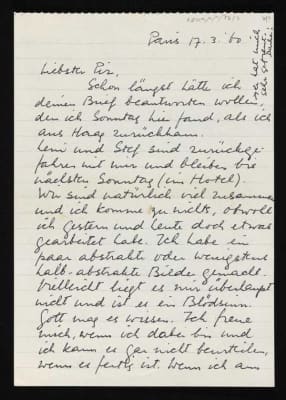 Paris 17.3.60.
Liebster Piz,
Schon längst hätte ich
deinen Brief beantworten wollen
den ich Sonntag hier fand, als ich
aus Haag zurückkam.
Leni und Stef sind zurückge-
fahren mit mir und bleiben bis
nächsten Sonntag (im Hotel).
Wir sind natürlich viel zusammen
und ich komme zu nichts, obwohl
ich gestern und heute doch etwas
gearbeitet habe. Ich habe ein
paar abstrakte oder wenigstens
halb-abstrakte Bilder gemacht.
Vielleicht liegt es mir überhaupt
nicht und ist es ein Blödsinn.
Gott mag es wissen. Ich freue
mich, wenn ich dabei bin und
ich kann es gar nicht beurteilen,
wenn es fertig ist. Wenn ich am